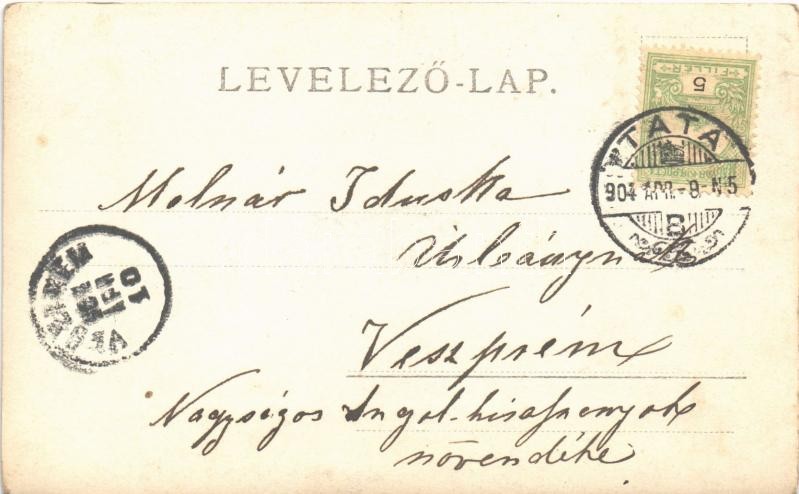 LEVELEZŐ-LAP.
FILLÉR
5
TATA
904 APR.-8. N5
B
Molnár Iduska
Veszprém
VESZPRÉM
904 APR
10
Nagyságos Angol-kisasszonyok
növendéke